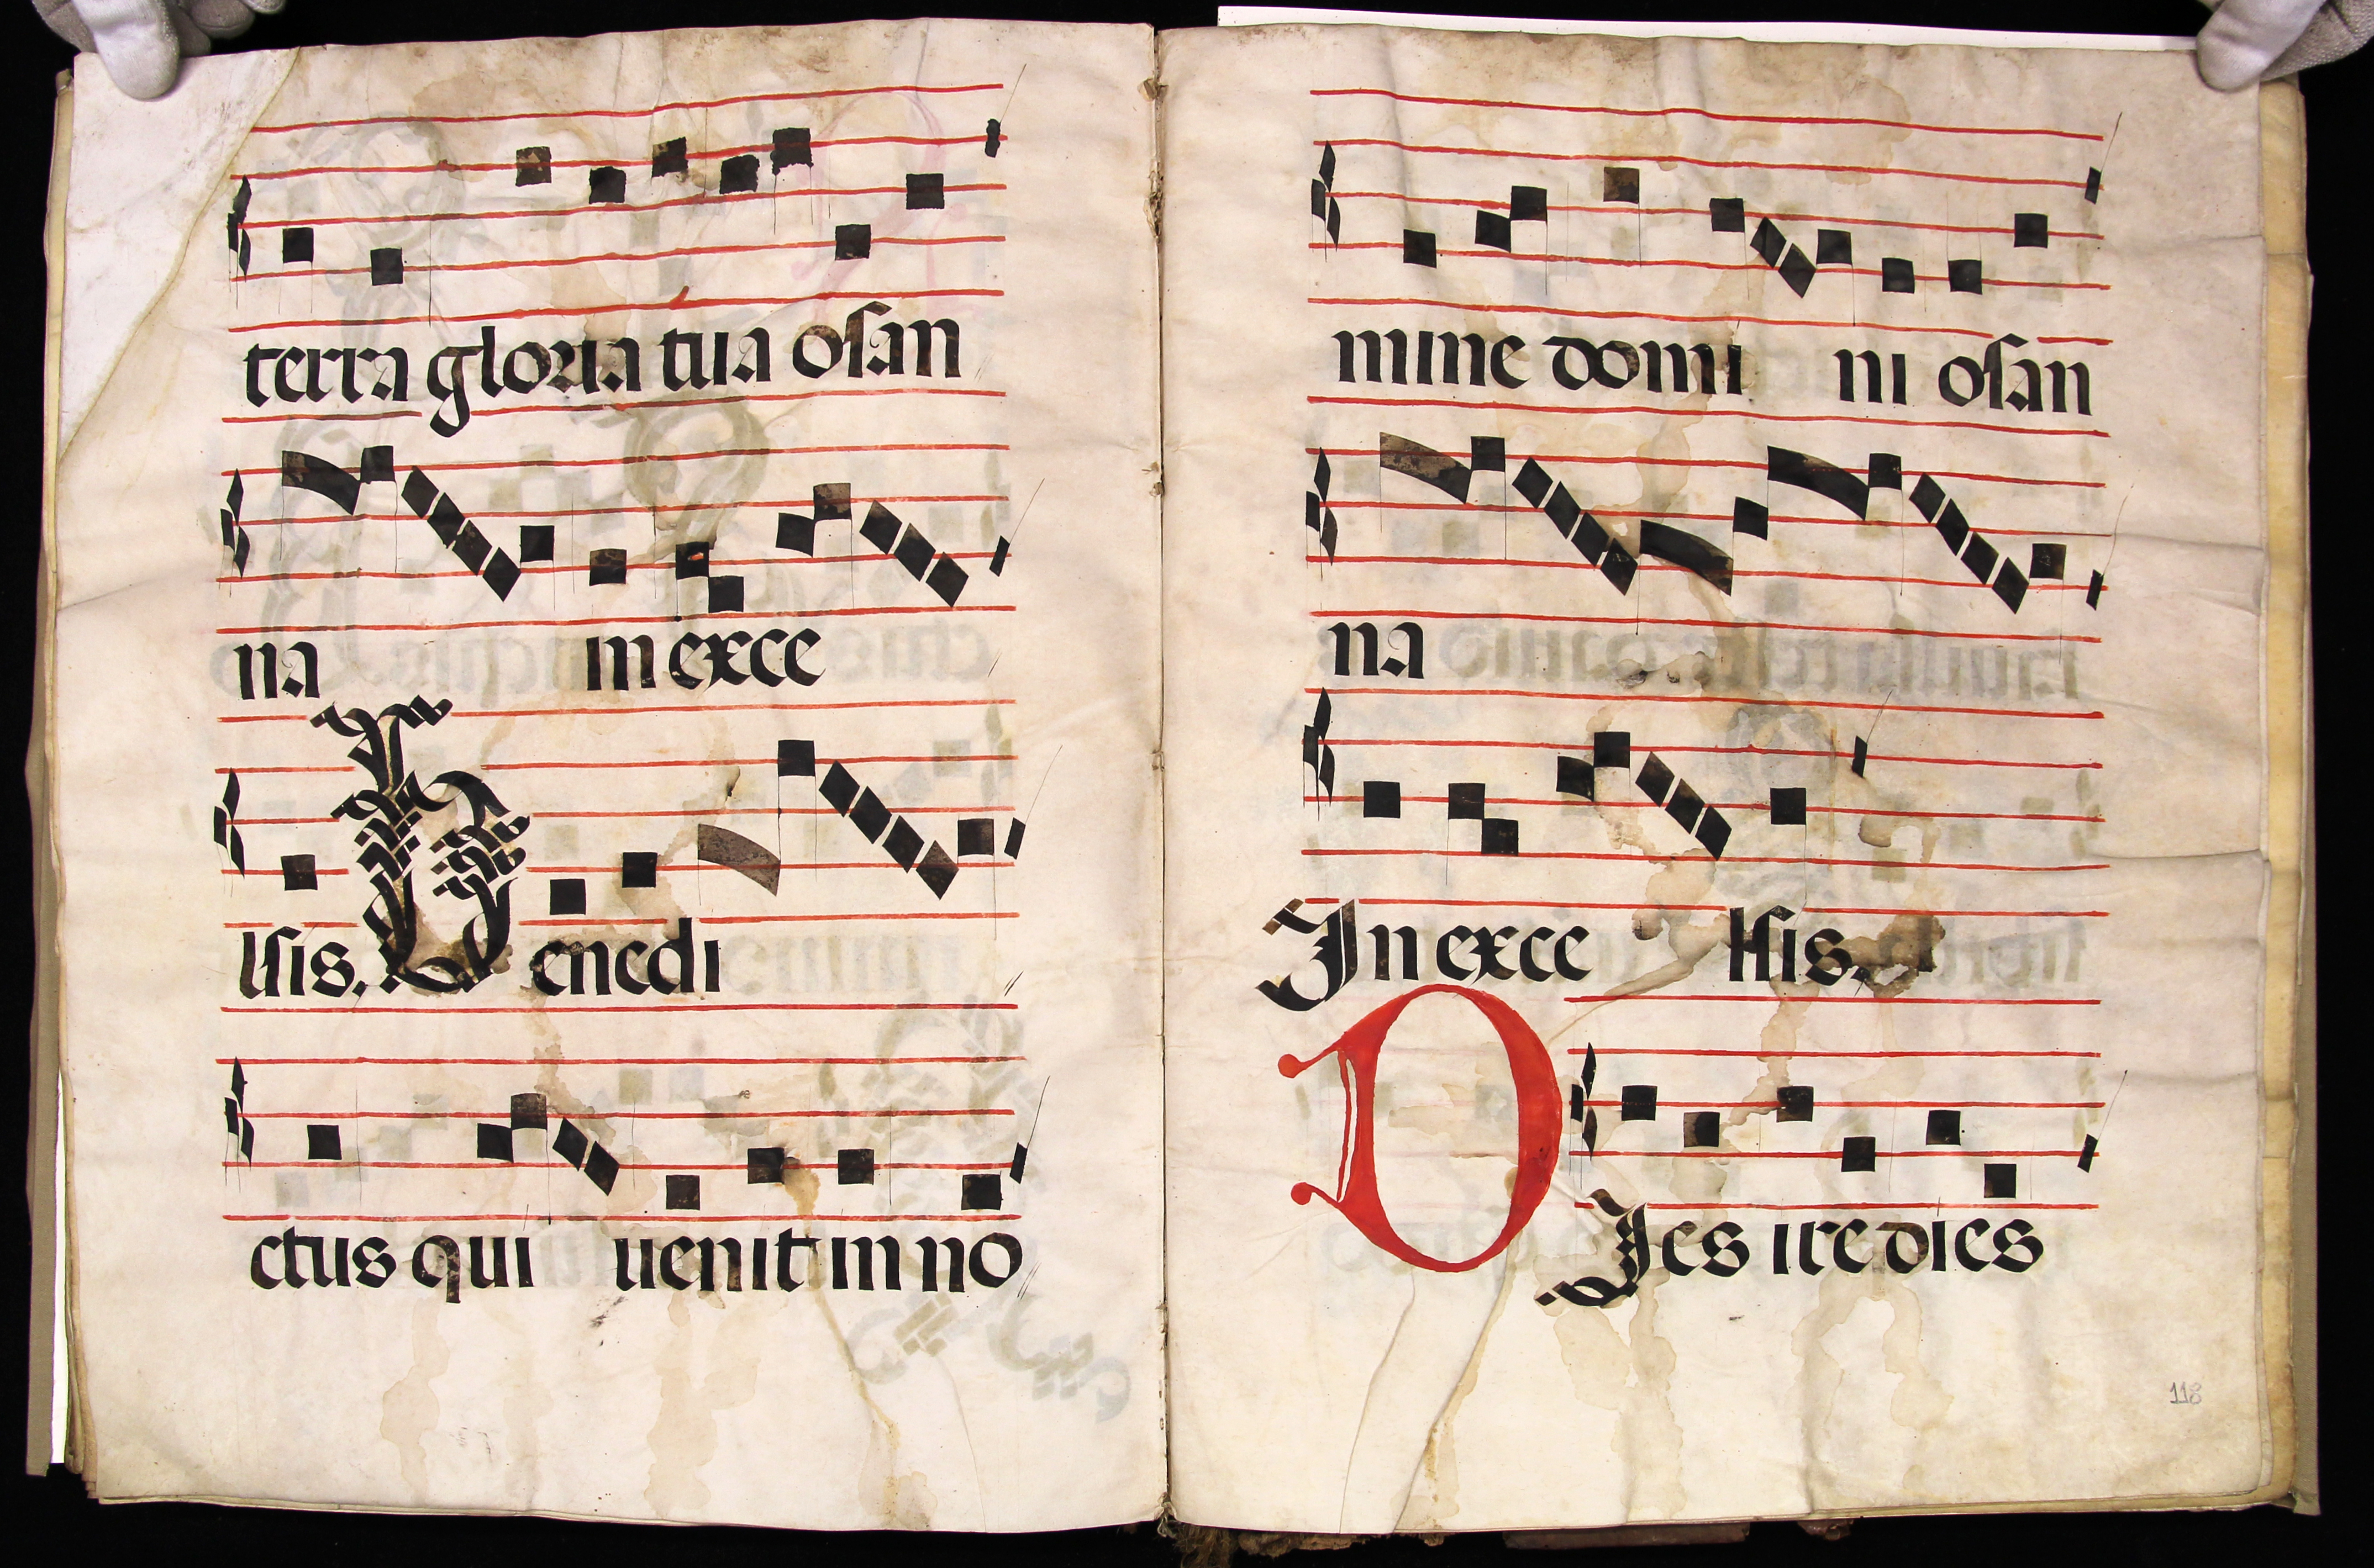 terra gloria tua osan
na in exce
lsis. Benedi
ctus qui uenit in no
mine domi ni osan
na
In exce lsis.
DIes ire dies
118